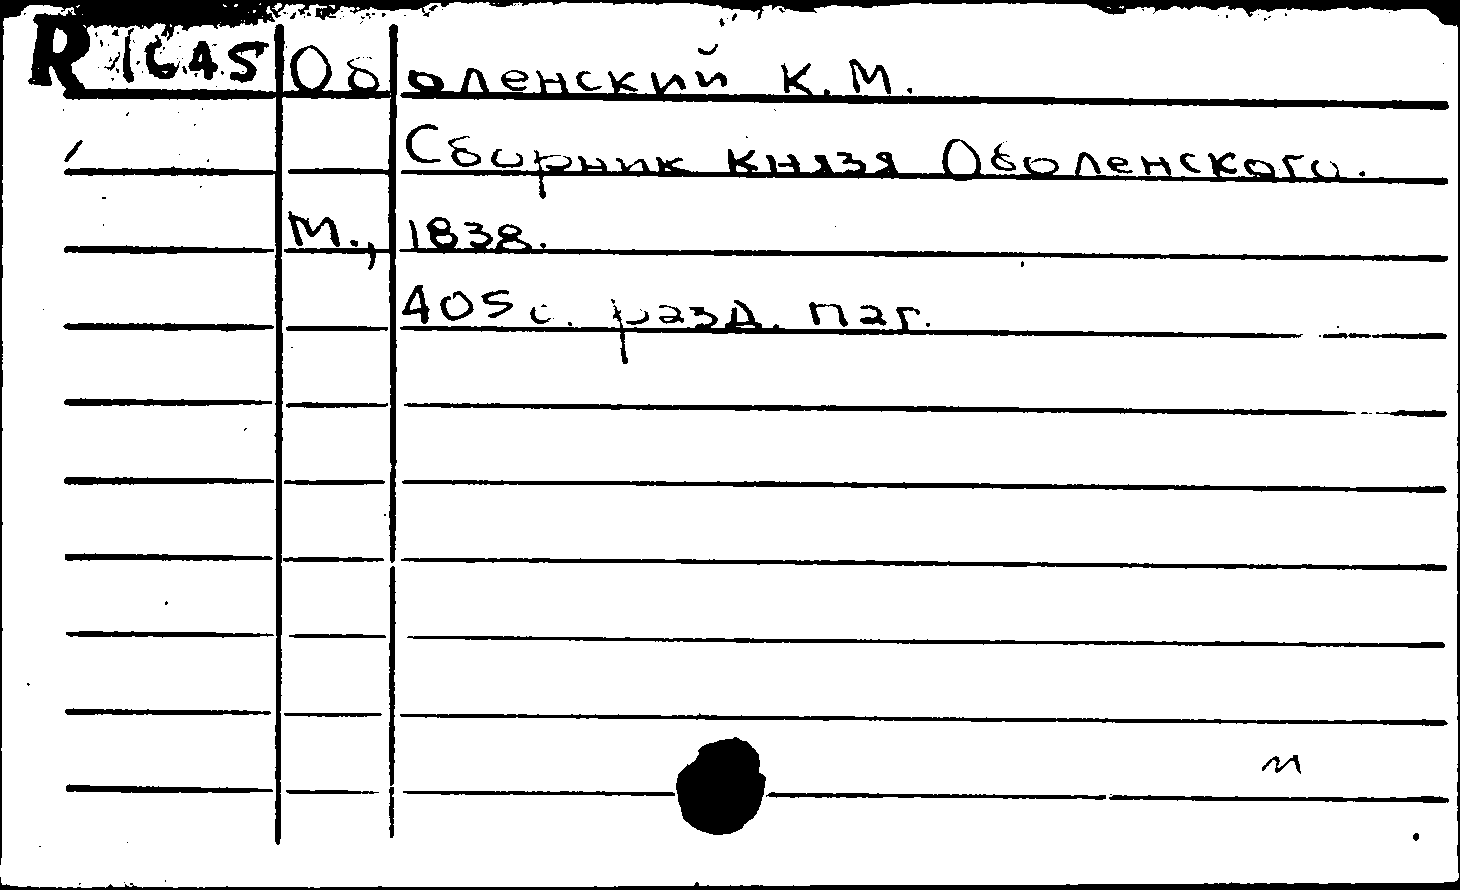 R 1645 Оболенский К.М.
Сборник князя Оболенского.
М., 1838.
405 с. разд. паг.
м